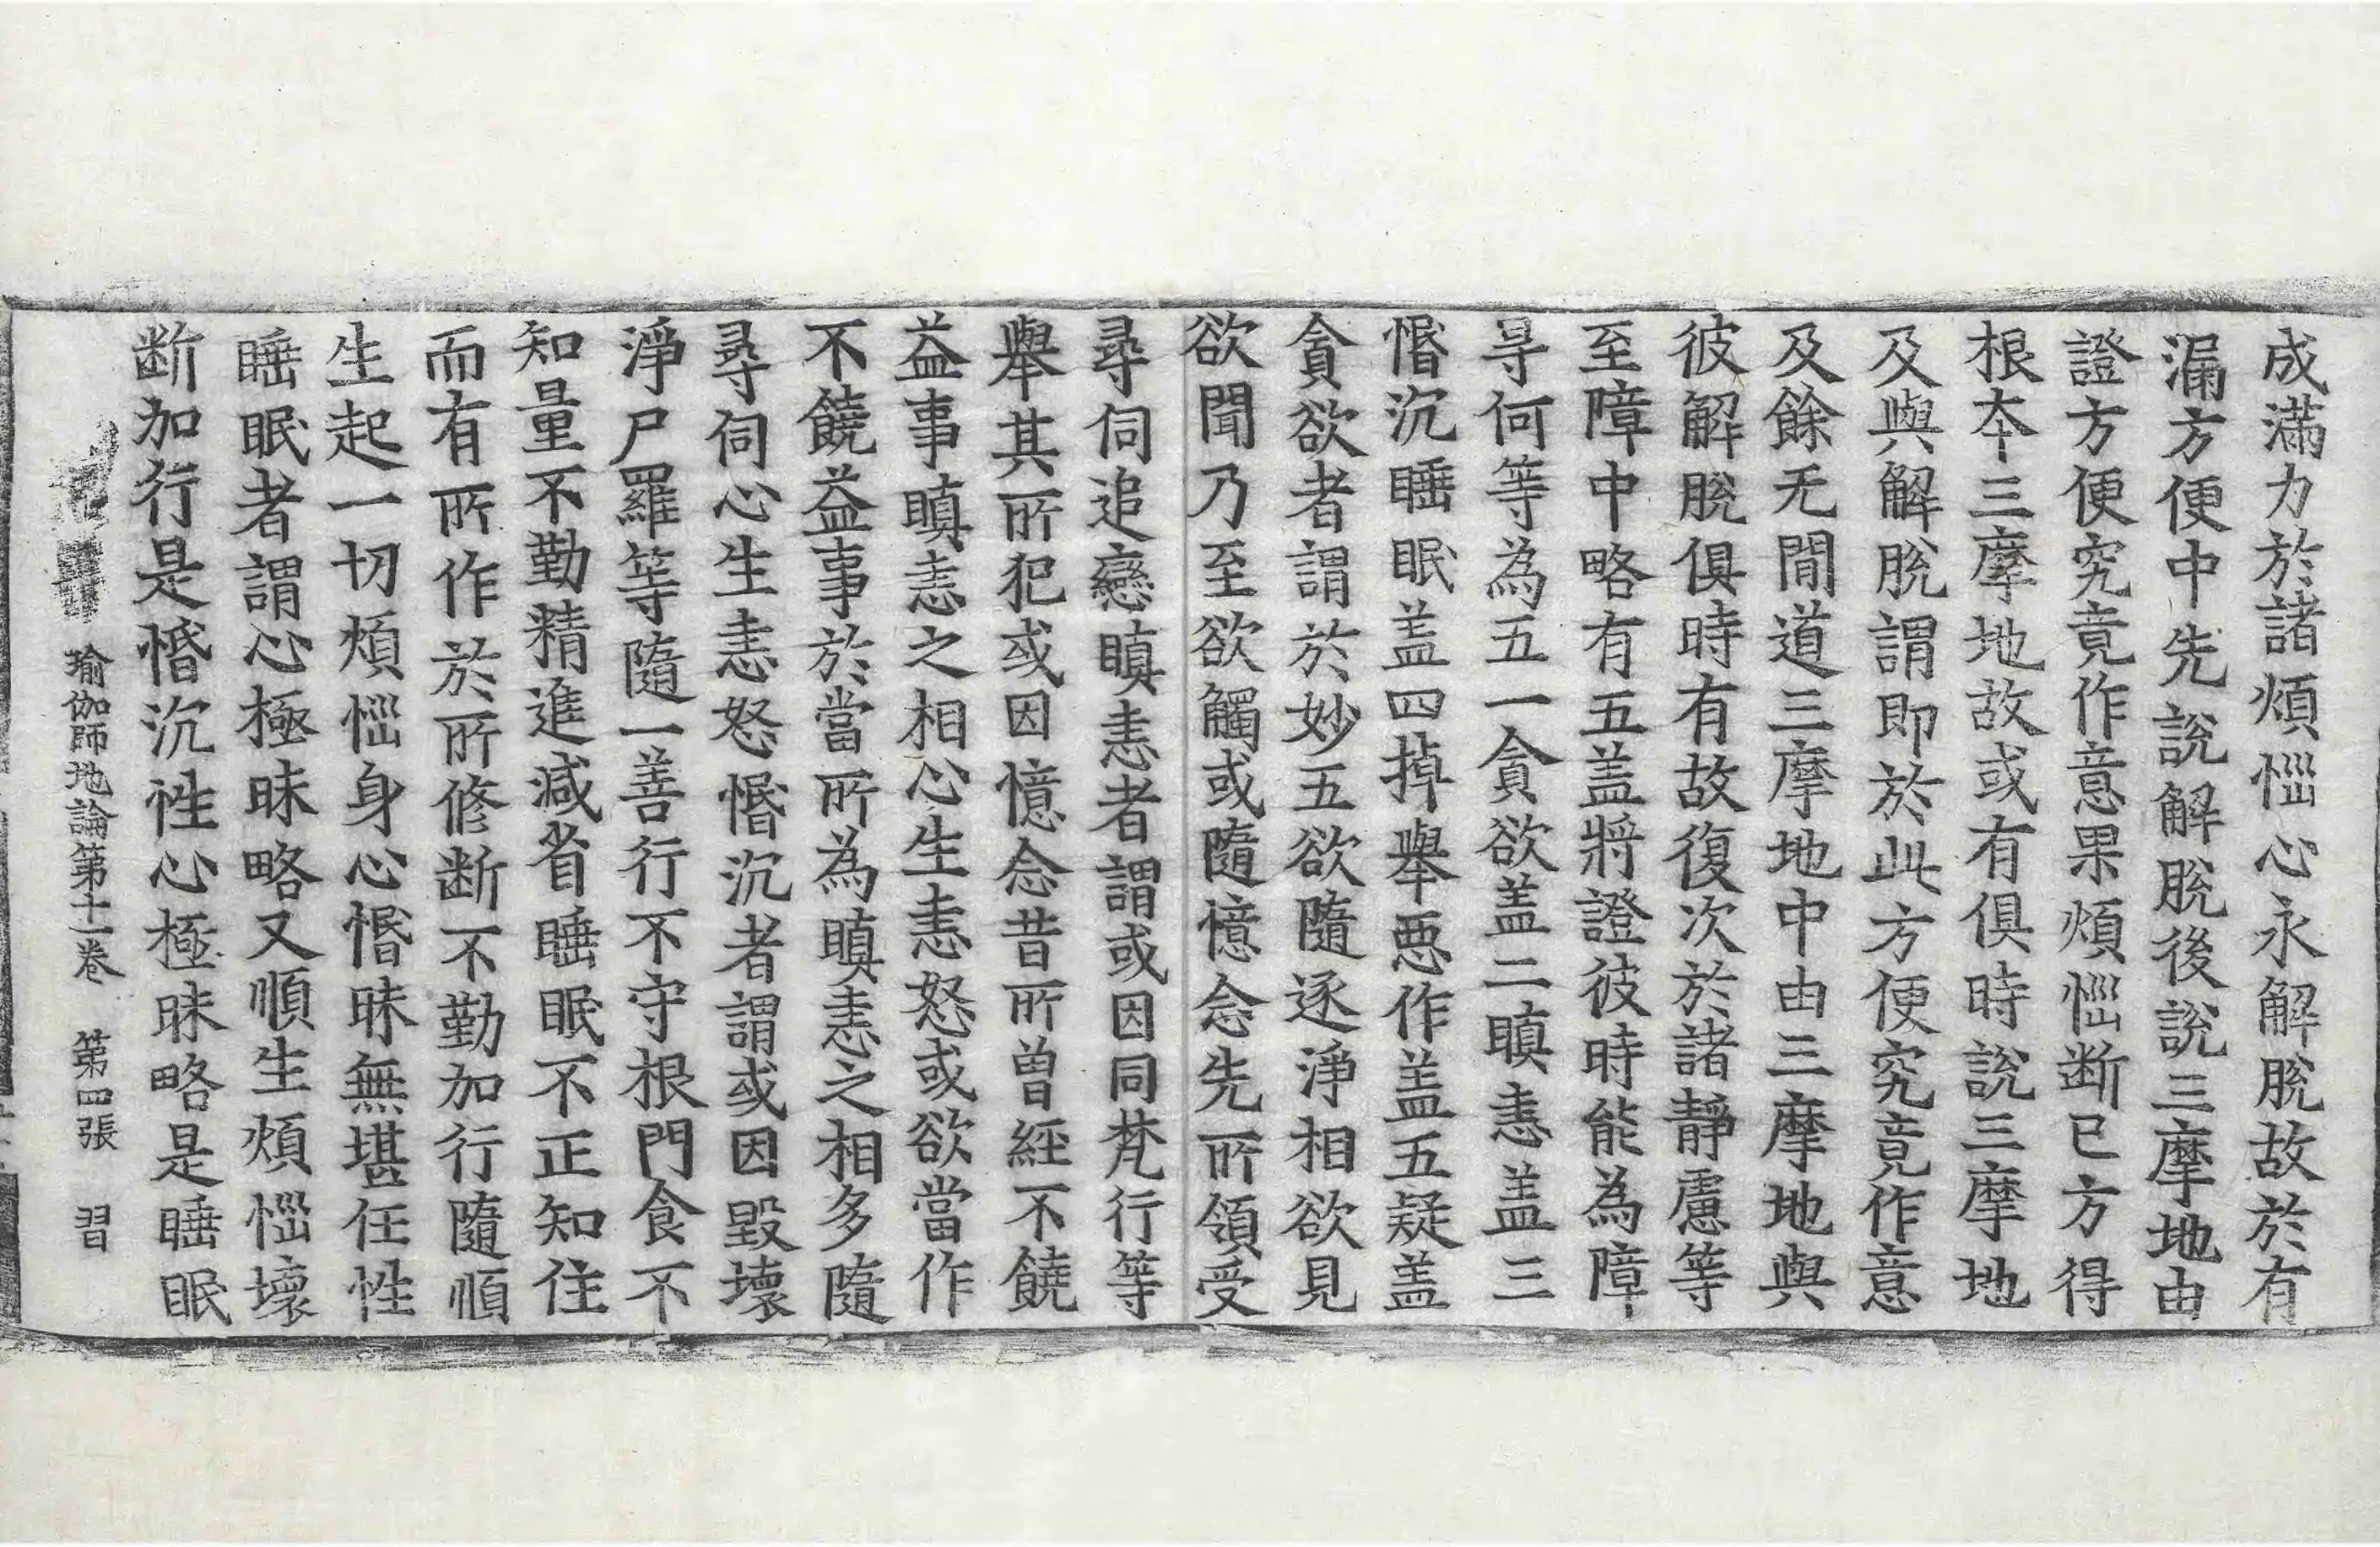 成滿力於諸煩惱心永解脫故於有
漏方便中先說解脫後說三摩地由
證方便究竟作意果煩惱斷已方得
根本三摩地故或有俱時說三摩地
及與解脫謂即於此方便究竟作意
及餘无閒道三摩地中由三摩地與
彼解脫俱時有故復次於諸靜慮等
至障中略有五盖將證彼時能為障
㝵何等為五一貪欲盖二瞋恚盖三
惛沉睡眠盖四掉舉惡作盖五疑盖
貪欲者謂於妙五欲隨逐淨相欲見
欲聞乃至欲觸或隨憶念先所領受
尋伺追戀瞋恚者謂或因同梵行等
舉其所犯或因憶念昔所曾經不饒
益事瞋恚之相心生恚怒或欲當作
不饒益事於當所為瞋恚之相多隨
尋伺心生恚怒惛沉者謂或因毀壞
淨尸羅等隨一善行不守根門食不
知量不勤精進減省睡眠不正知住
而有所作於所修斷不勤加行隨順
生起一切煩惱身心惛昧無堪任性
睡眠者謂心極昧略又順生煩惱壞
斷加行是惛沉性心極昧略是睡眠
瑜伽師地論第十一卷 第四張 習